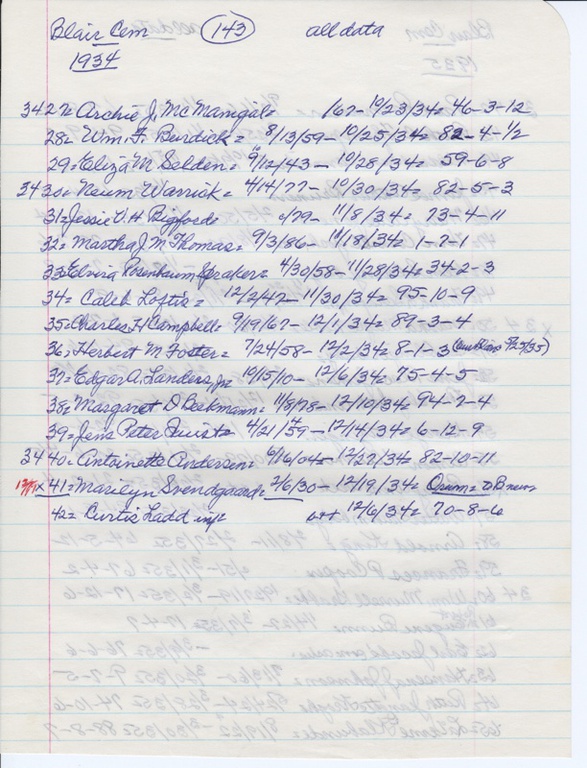 Blair Cem (143) all data
1934
3427= Archie J. McMamgil= /67- 10/23/34= 46-3-12
28= Wm. F. Burdick= 8/13/59- 10/25/34= 82-4-1/2
29= Eliza M. Selden= 9/12/43- 10/28/34= 59-6-8
3430= Neum Warrick= 4/14/77- 10/30/34= 82-5-3
31= Jessie V. H. Bigford= 0/79- 11/8/34= 73-4-11
32= Martha J. M. Thomas= 9/3/86- 11/18/34= 1-7-1
33= Elvira Rosenbaum Spraker= 4/30/58- 11/28/34= 34-2-3
34= Caleb Loftis= 12/2/47- 11/30/34= 95-10-9
35= Charles H Campbell= 9/19/67- 12/1/34= 89-3-4
36= Herbert M Foster= 7/24/58- 12/2/34= 8-1-3 5/25/35)
37= Edgar A. Landers, Jr= 10/15/10- 12/6/34= 75-4-5
38= Margaret D Beekmann= 11/8/78- 12/10/34= 94-2-4
39= Jens Peter 4/21/59- 12/14/34= 6-12-9
3440= Antoinette Andersen= 6/16/04- 12/27/34= 82-10-11
x 41= Marilyn Svendgaard= 2/6/30- 12/19/34= Orum= DB news
42= Curtis Ladd inf= b++ 12/6/34= 70-8-6